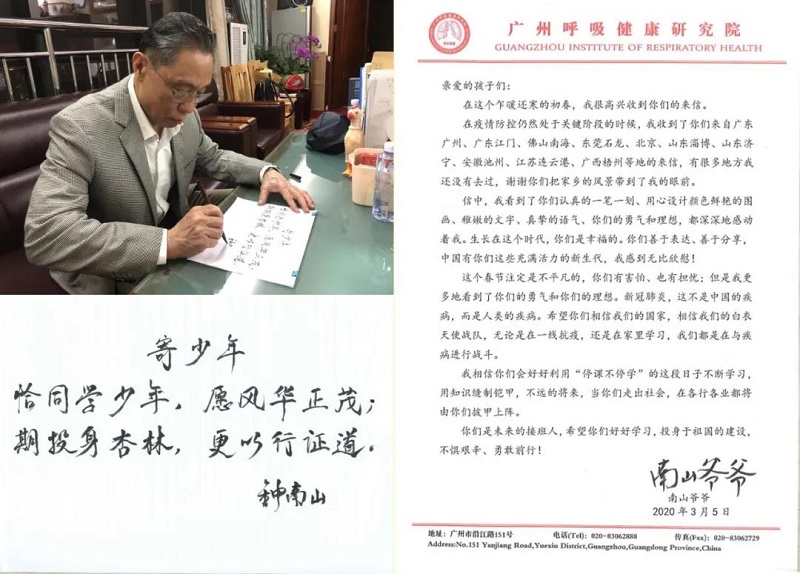 寄少年
恰同学少年，愿风华正茂；
期投身杏林，更以行证道．
钟南山
广州呼吸健康研究院
GUANGZHOU INSTITUTE OF RESPIRATORY HEALTH
亲爱的孩子们：
在这个乍暖还寒的初春，我很高兴收到你们的来信。
在疫情防控仍然处于关键阶段的时候，我收到了你们来自广东
广州、广东江门、佛山南海、东莞石龙、北京、山东淄博、山东济
宁、安徽池州、江苏连云港、广西梧州等地的来信，有很多地方我
还没有去过，谢谢你们把家乡的风景带到了我的眼前。
信中，我看到了你们认真的一笔一划、用心设计颜色鲜艳的图
画、稚嫩的文字、真挚的语气、你们的勇气和理想，都深深地感动
着我。生长在这个时代，你们是幸福的。你们善于表达、善于分享，
中国有你们这些充满活力的新生代，我感到无比欣慰！
这个春节注定是不平凡的，你们有害怕、也有担忧；但是我更
多地看到了你们的勇气和你们的理想。新冠肺炎，这不是中国的疾
病，而是人类的疾病。希望你们相信我们的国家，相信我们的白衣
天使战队，无论是在一线抗疫，还是在家里学习，我们都是在与疾
病进行战斗。
我相信你们会好好利用“停课不停学”的这段日子不断学习，
用知识缝制铠甲，不远的将来，当你们走出社会，在各行各业都将
由你们披甲上阵。
你们是未来的接班人，希望你们好好学习，投身于祖国的建设，
不惧艰辛、勇敢前行！
南山爷爷
南山爷爷
2020 年 3 月 5 日
地址：广州市沿江路151号 电话(Tel)：020-83062888 传真(Fax)：020-83062729
Address:No.151 Yanjiang Road,Yuexiu District,Guangzhou,Guangdong Province,China